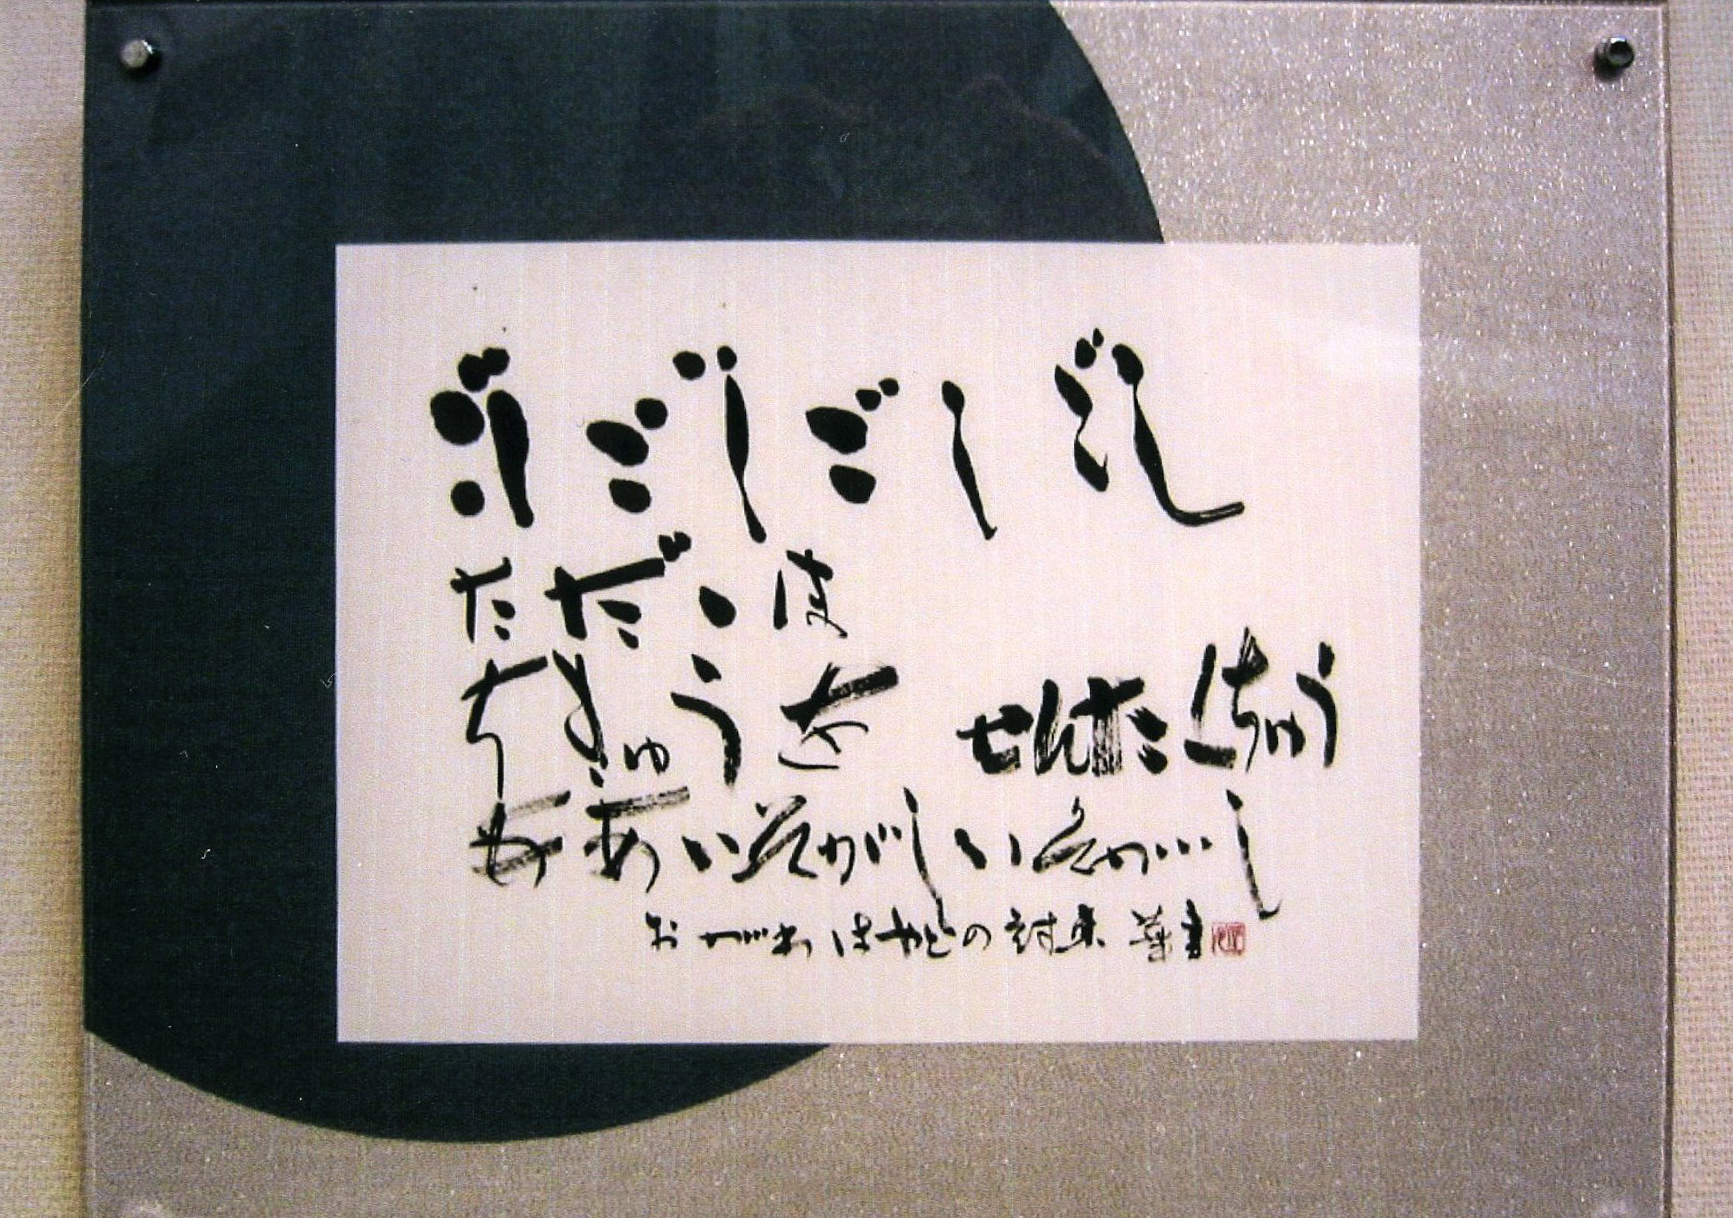 ごしごしごしごし
ただいま
ちきゅうを せんたくちゅう
ああいそがしいそがし
おがわはやとの詩集 華書